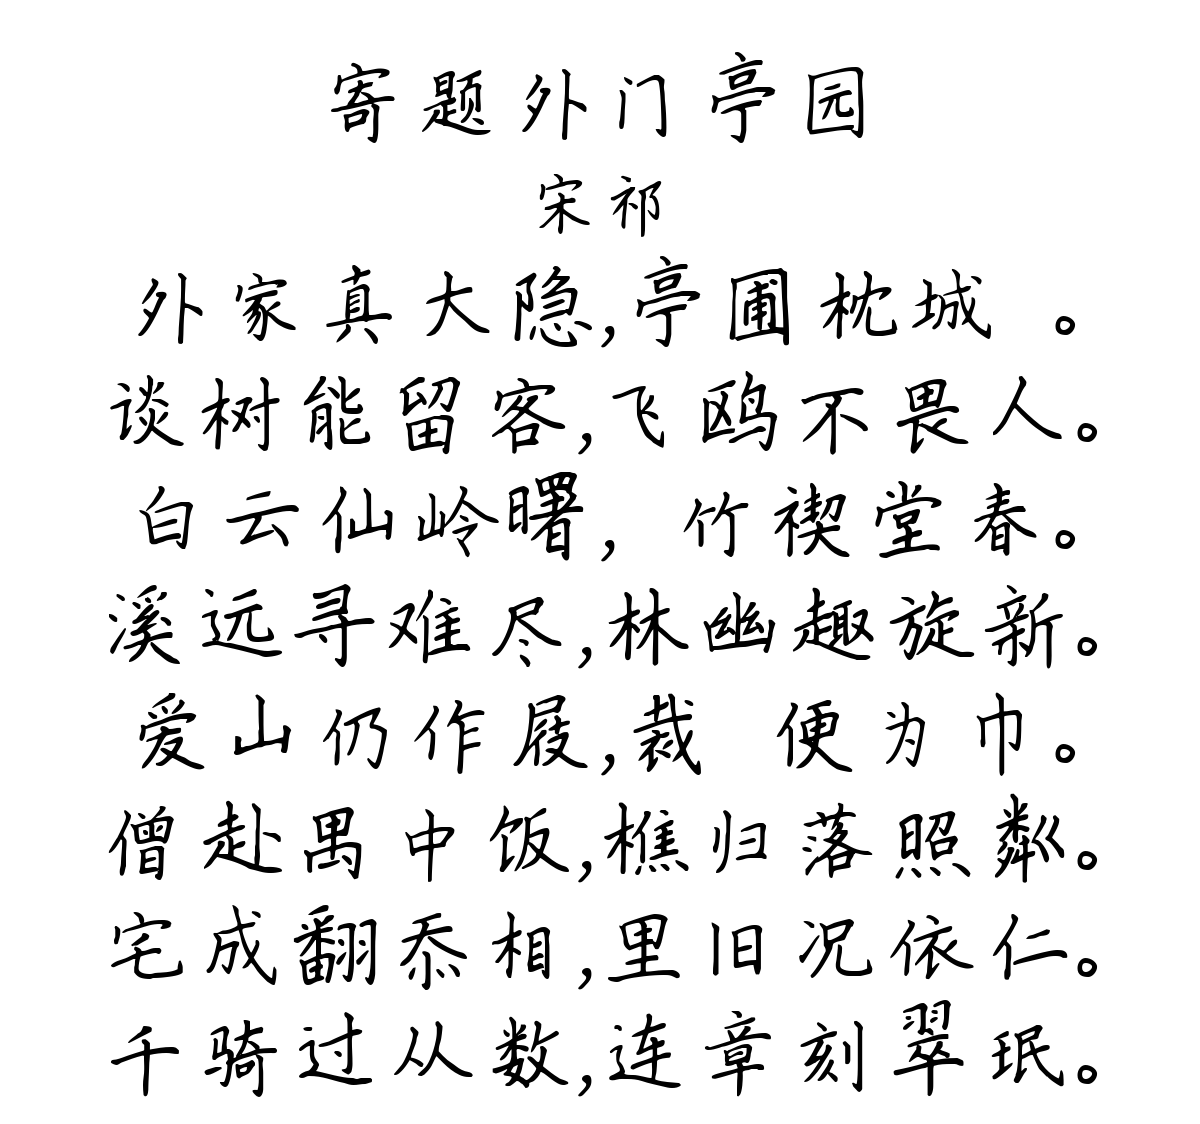 寄题外门亭园
宋祁
外家真大隐,亭圃枕城 。
谈树能留客,飞鸥不畏人。
白云仙岭曙, 竹禊堂春。
溪远寻难尽,林幽趣旋新。
爱山仍作屐,裁 便为巾。
僧赴禺中饭,樵归落照粼。
宅成翻忝相,里旧况依仁。
千骑过从数,连章刻翠珉。